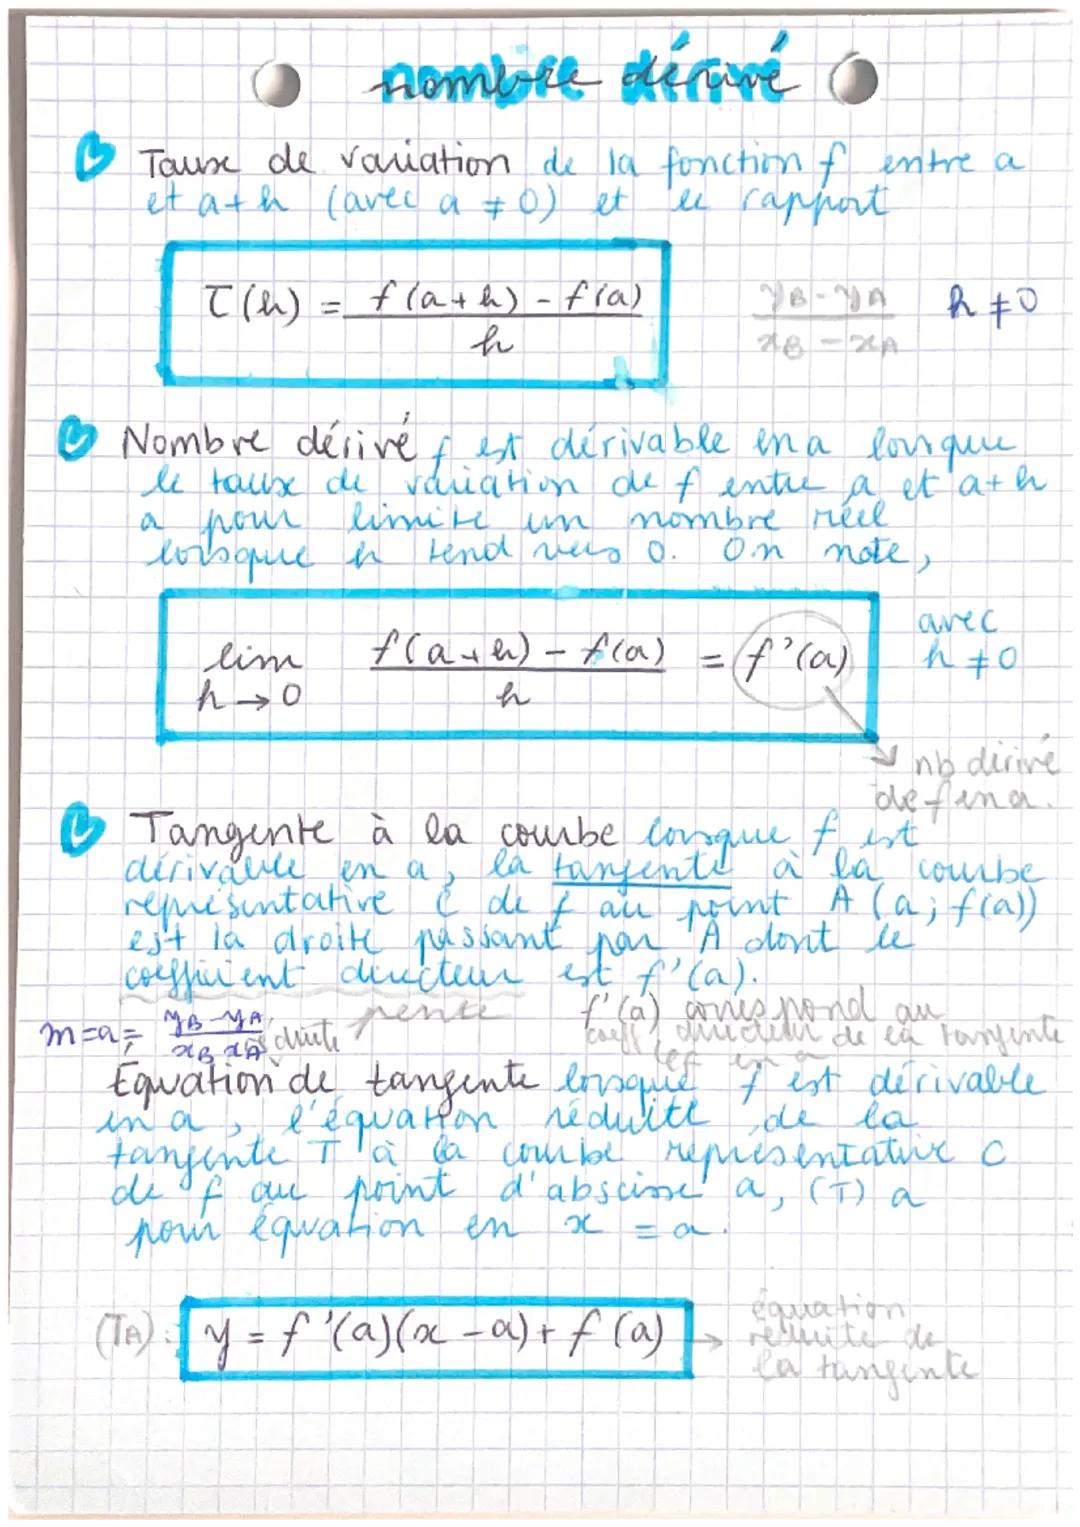 nombre dérivé
Taux de variation de la fonction f entre a
et a+h (avec a ≠ 0) et le rapport
τ(h) = f(a+h) - f(a) / h
yB - yA / xB - xA
h ≠ 0
Nombre dérivé f est dérivable en a lorsque
le taux de variation de f entre a et a+h
a pour limite un nombre réel
lorsque h tend vers 0. On note,
lim h→0 f(a+h) - f(a) / h = f'(a)
avec
h ≠ 0
nb dérivé
de f en a.
Tangente à la courbe lorsque f est
dérivable en a, la tangente à la courbe
représentative C de f au point A (a; f(a))
est la droite passant par A dont le
coefficient directeur est f'(a).
m = a = yB - yA / xB - xA droite
pente
f'(a) correspond au
coeff directeur de la tangente
en a
Équation de tangente lorsque f est dérivable
en a, l'équation réduite de la
tangente T à la courbe représentative C
de f au point d'abscisse a, (T) a
pour équation en x = a.
(TA): y = f'(a)(x - a) + f(a)
équation
réduite de
la tangente